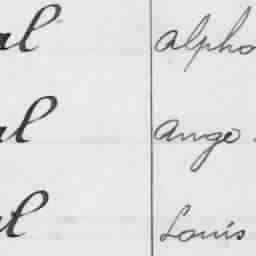 al alpho
al ange
al Louis